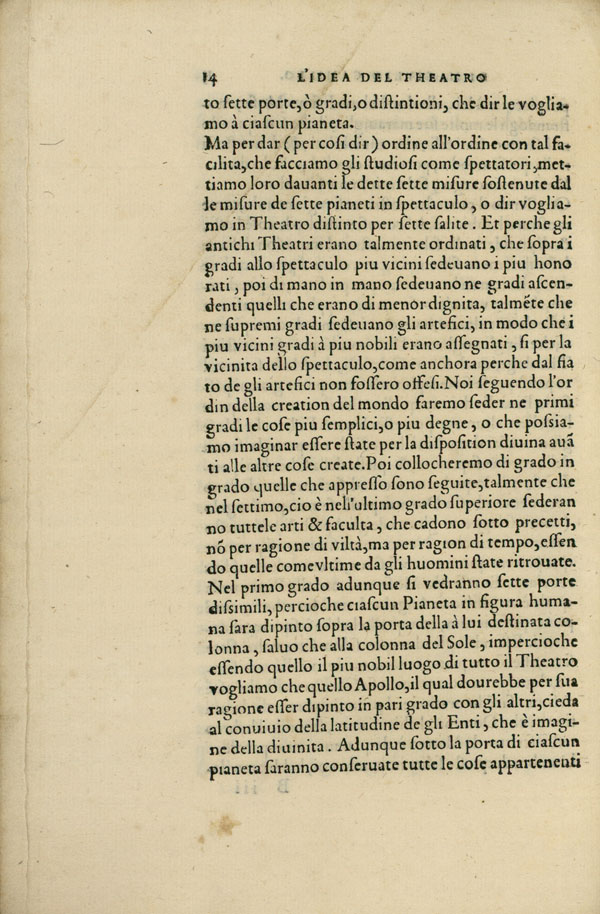 14 L'IDEA DEL THEATRO
to sette porte, ò gradi, o distintioni, che dir le voglia-
mo à ciascun pianeta.
Ma per dar (per cosi dir) ordine all'ordine con tal fa-
cilita, che facciamo gli studiosi come spettatori, met-
tiamo loro dauanti le dette sette misure sostenute dal
le misure de sette pianeti in spettaculo, o dir voglia-
mo in Theatro distinto per sette salite. Et perche gli
antichi Theatri erano talmente ordinati, che sopra i
gradi allo spettaculo piu vicini sedeuano i piu hono
rati, poi di mano in mano sedeuano ne gradi ascen-
denti quelli che erano di menor dignita, talmẽte che
ne supremi gradi sedeuano gli artefici, in modo che i
piu vicini gradi à piu nobili erano assegnati, si per la
vicinita dello spettaculo, come anchora perche dal fia
to de gli artefici non fossero offesi. Noi seguendo l'or
din della creation del mondo faremo seder ne primi
gradi le cose piu semplici, o piu degne, o che possia-
mo imaginar essere state per la disposition diuina auã
ti alle altre cose create. Poi collocheremo di grado in
grado quelle che appresso sono seguite, talmente che
nel settimo, cio è nell'ultimo grado superiore sederan
no tuttele arti & faculta, che cadono sotto precetti,
nõ per ragione di viltà, ma per ragion di tempo, essen
do quelle comevltime da gli huomini state ritrouate.
Nel primo grado adunque si vedranno sette porte
dissimili, percioche ciascun Pianeta in figura huma-
na sara dipinto sopra la porta della à lui destinata co-
lonna, saluo che alla colonna del Sole, impercioche
essendo quello il piu nobil luogo di tutto il Theatro
vogliamo che quello Apollo, il qual dourebbe per sua
ragione esser dipinto in pari grado con gli altri, cieda
al conuiuio della latitudine de gli Enti, che è imagi-
ne della diuinita. Adunque sotto la porta di ciascun
pianeta saranno conseruate tutte le cose appartenenti